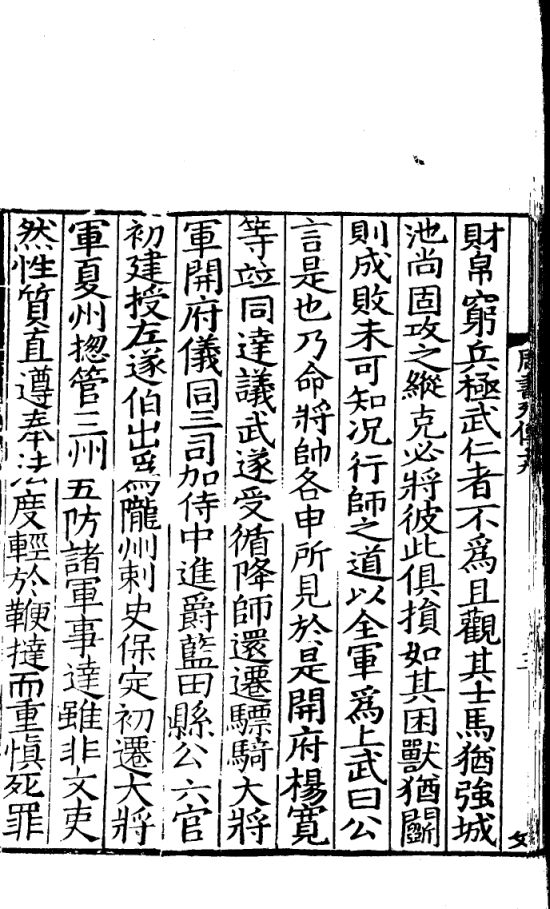 財帛窮兵極武仁者不爲且觀其士馬猶強城
池尚固攻之縱克必將彼此俱損如其困獸猶鬭
則成敗未可知况行師之道以全軍爲上武曰公
言是也乃命將帥各申所見於是開府楊寛
等竝同達議武遂受循降師還遷驃騎大將
軍開府儀同三司加侍中進爵藍田縣公六官
初建授左遂伯出爲隴州刺史保定初遷大將
軍夏州揔管三州五防諸軍事達雖非文吏
然性質直遵奉法度輕於鞭撻而重愼死罪